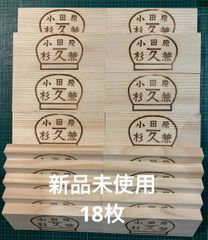 小田原
杉久兼
小田原
杉久兼
小田原
杉久兼
小田原
杉久兼
小田原
杉久兼
小田原
杉久兼
小田原
杉久兼
小田原
杉久兼
新品未使用
18枚